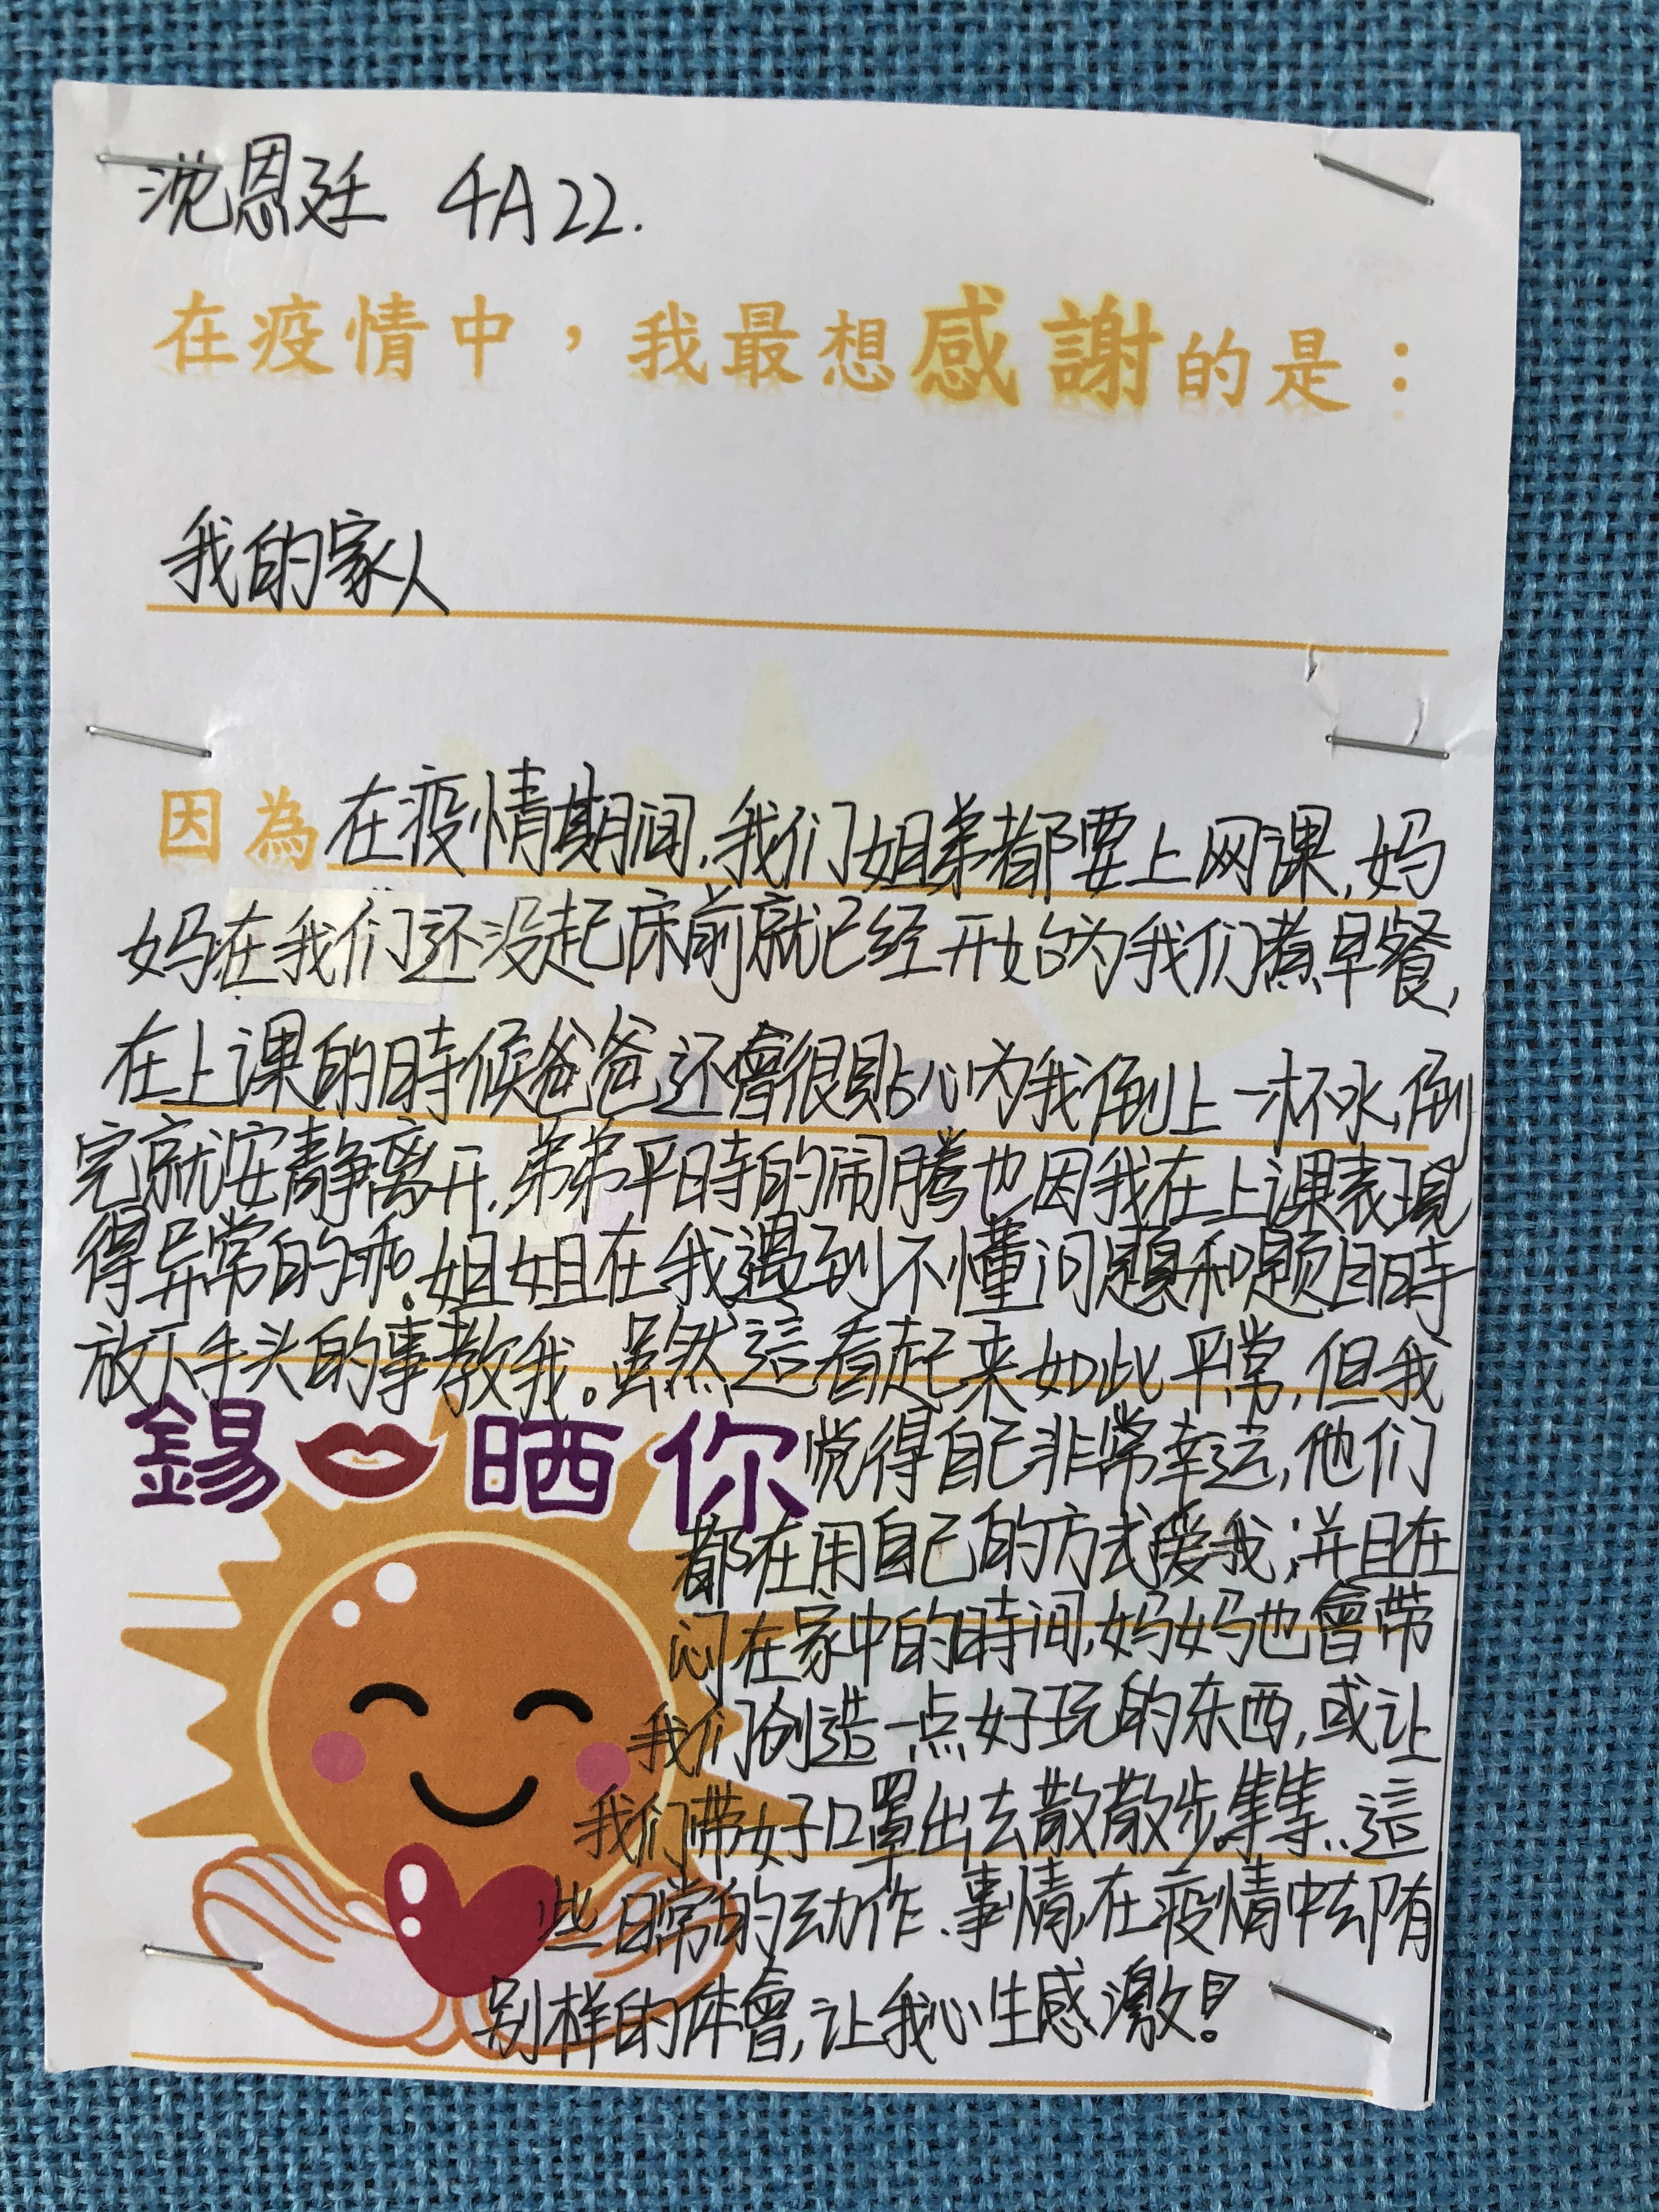 沈恩廷 4A22.
在疫情中，我最想感謝的是：
我的家人
因為在疫情期间,我们姐弟都要上网课,妈
妈在我们还没起床前就已经开始为我们煮早餐,
在上课的時候爸爸还會很貼心为我倒上一杯水,倒
完就安静离开.弟弟平時的闹腾也因我在上课表現
得异常的乖。姐姐在我遇到不懂问題和题目時
放下手头的事教我。虽然這看起来如此平常,但我
錫 晒 你 觉得自己非常幸运,他们
都在用自己的方式爱我;并且在
闷在家中的時间,妈妈也會带
我们创造一点好玩的东西,或让
我们带好口罩出去散散步等等..這
些日常的动作、事情,在疫情中却有
别样的体會,让我心生感激!